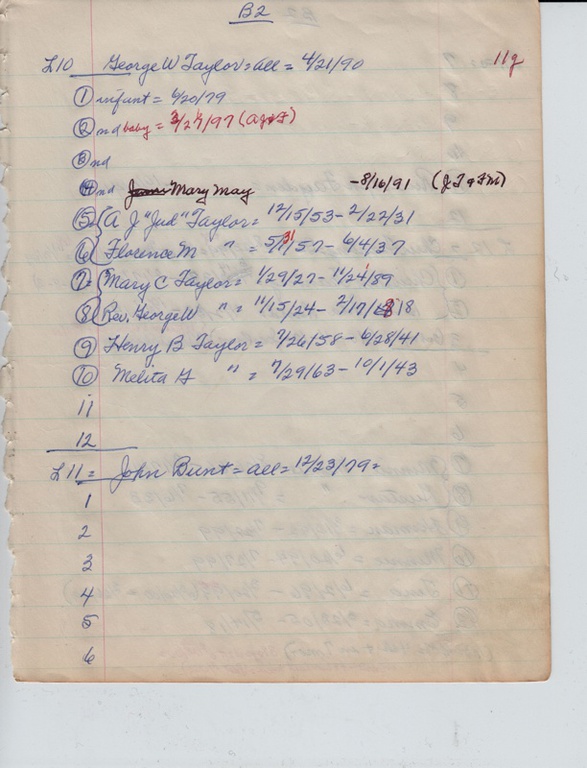 B2
L10 George W Taylor = all = 4/21/90 11g
① infant = 6/20/79
② nd baby = 3/27/97 (AJ&F)
③ nd
④ nd Mary May -8/16/91 (J T & F M)
⑤ A J "Jud" Taylor = 12/15/53 - 2/22/31
⑥ Florence M " = 5/31/57 - 6/4/37
⑦ Mary C Taylor = 1/29/27 - 11/24/89
⑧ Rev. George W " = 11/15/24 - 2/17/ 18
⑨ Henry B Taylor = 7/26/58 - 6/28/41
⑩ Melita G " = 7/29/63 - 10/1/43
11
12
L11 = John Bunt = all = 12/23/79 =
1
2
3
4
5
6